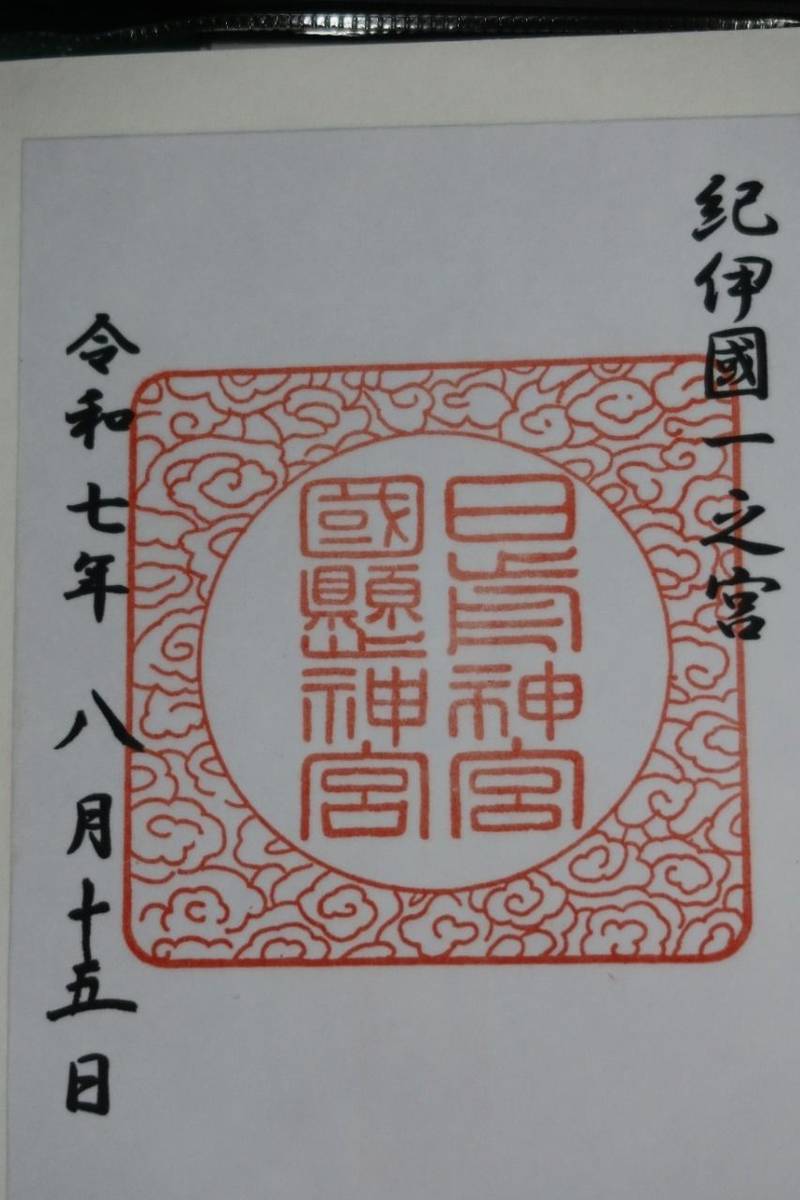 紀伊國一之宮
日前神宮
國懸神宮
令和七年 八月十五日